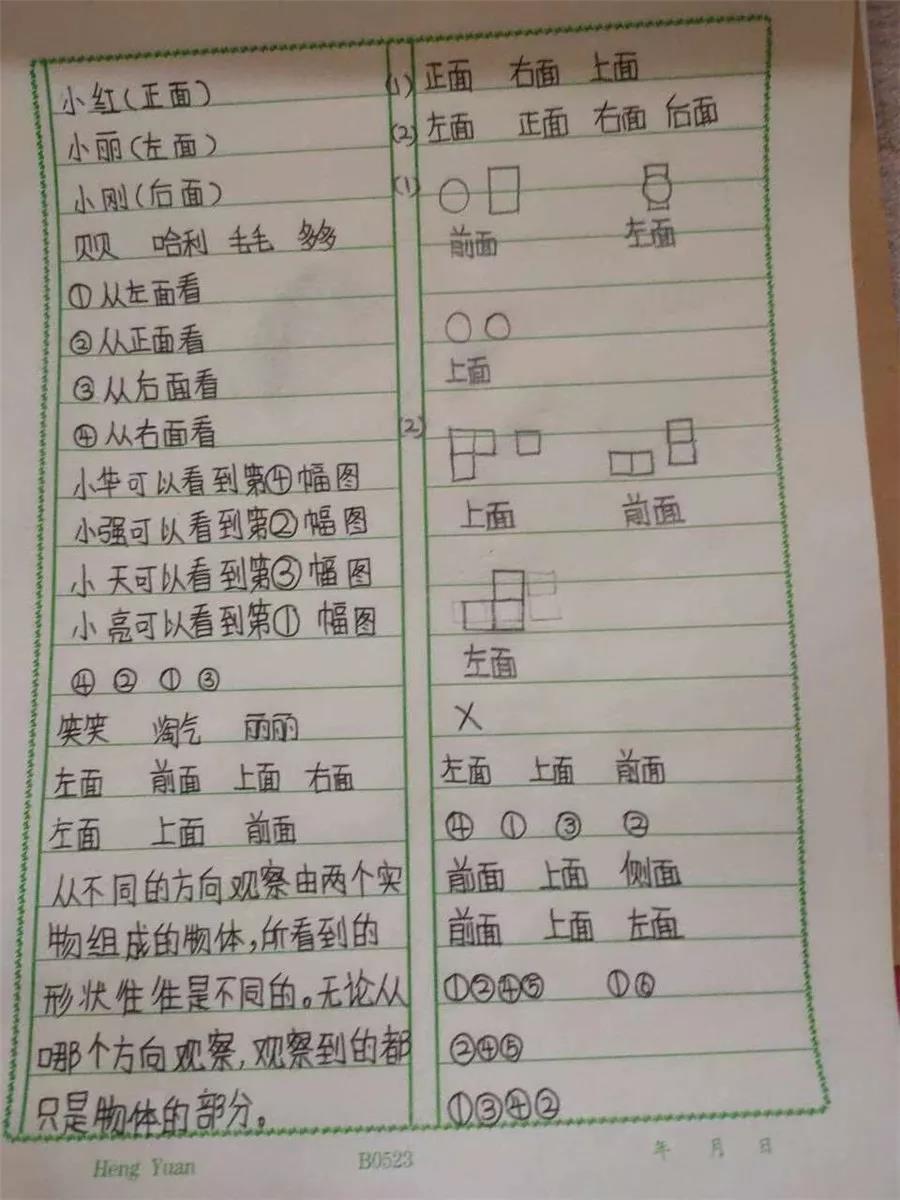 小红(正面)
小丽(左面)
小刚(后面)
贝贝 哈利 毛毛 多多
①从左面看
②从正面看
③从后面看
④从右面看
小华可以看到第④幅图
小强可以看到第②幅图
小天可以看到第③幅图
小亮可以看到第①幅图
④ ② ① ③
笑笑 淘气 丽丽
左面 前面 上面 右面
左面 上面 前面
从不同的方向观察由两个实
物组成的物体,所看到的
形状往往是不同的。无论从
哪个方向观察,观察到的都
只是物体的部分。
(1) 正面 右面 上面
(2) 左面 正面 右面 后面
(1)
前面 左面
上面
(2)
上面 前面
左面
X
左面 上面 前面
④ ① ③ ②
前面 上面 侧面
前面 上面 左面
①②④⑤ ①⑥
②④⑤
①③④②
Heng Yuan B0523 年 月 日